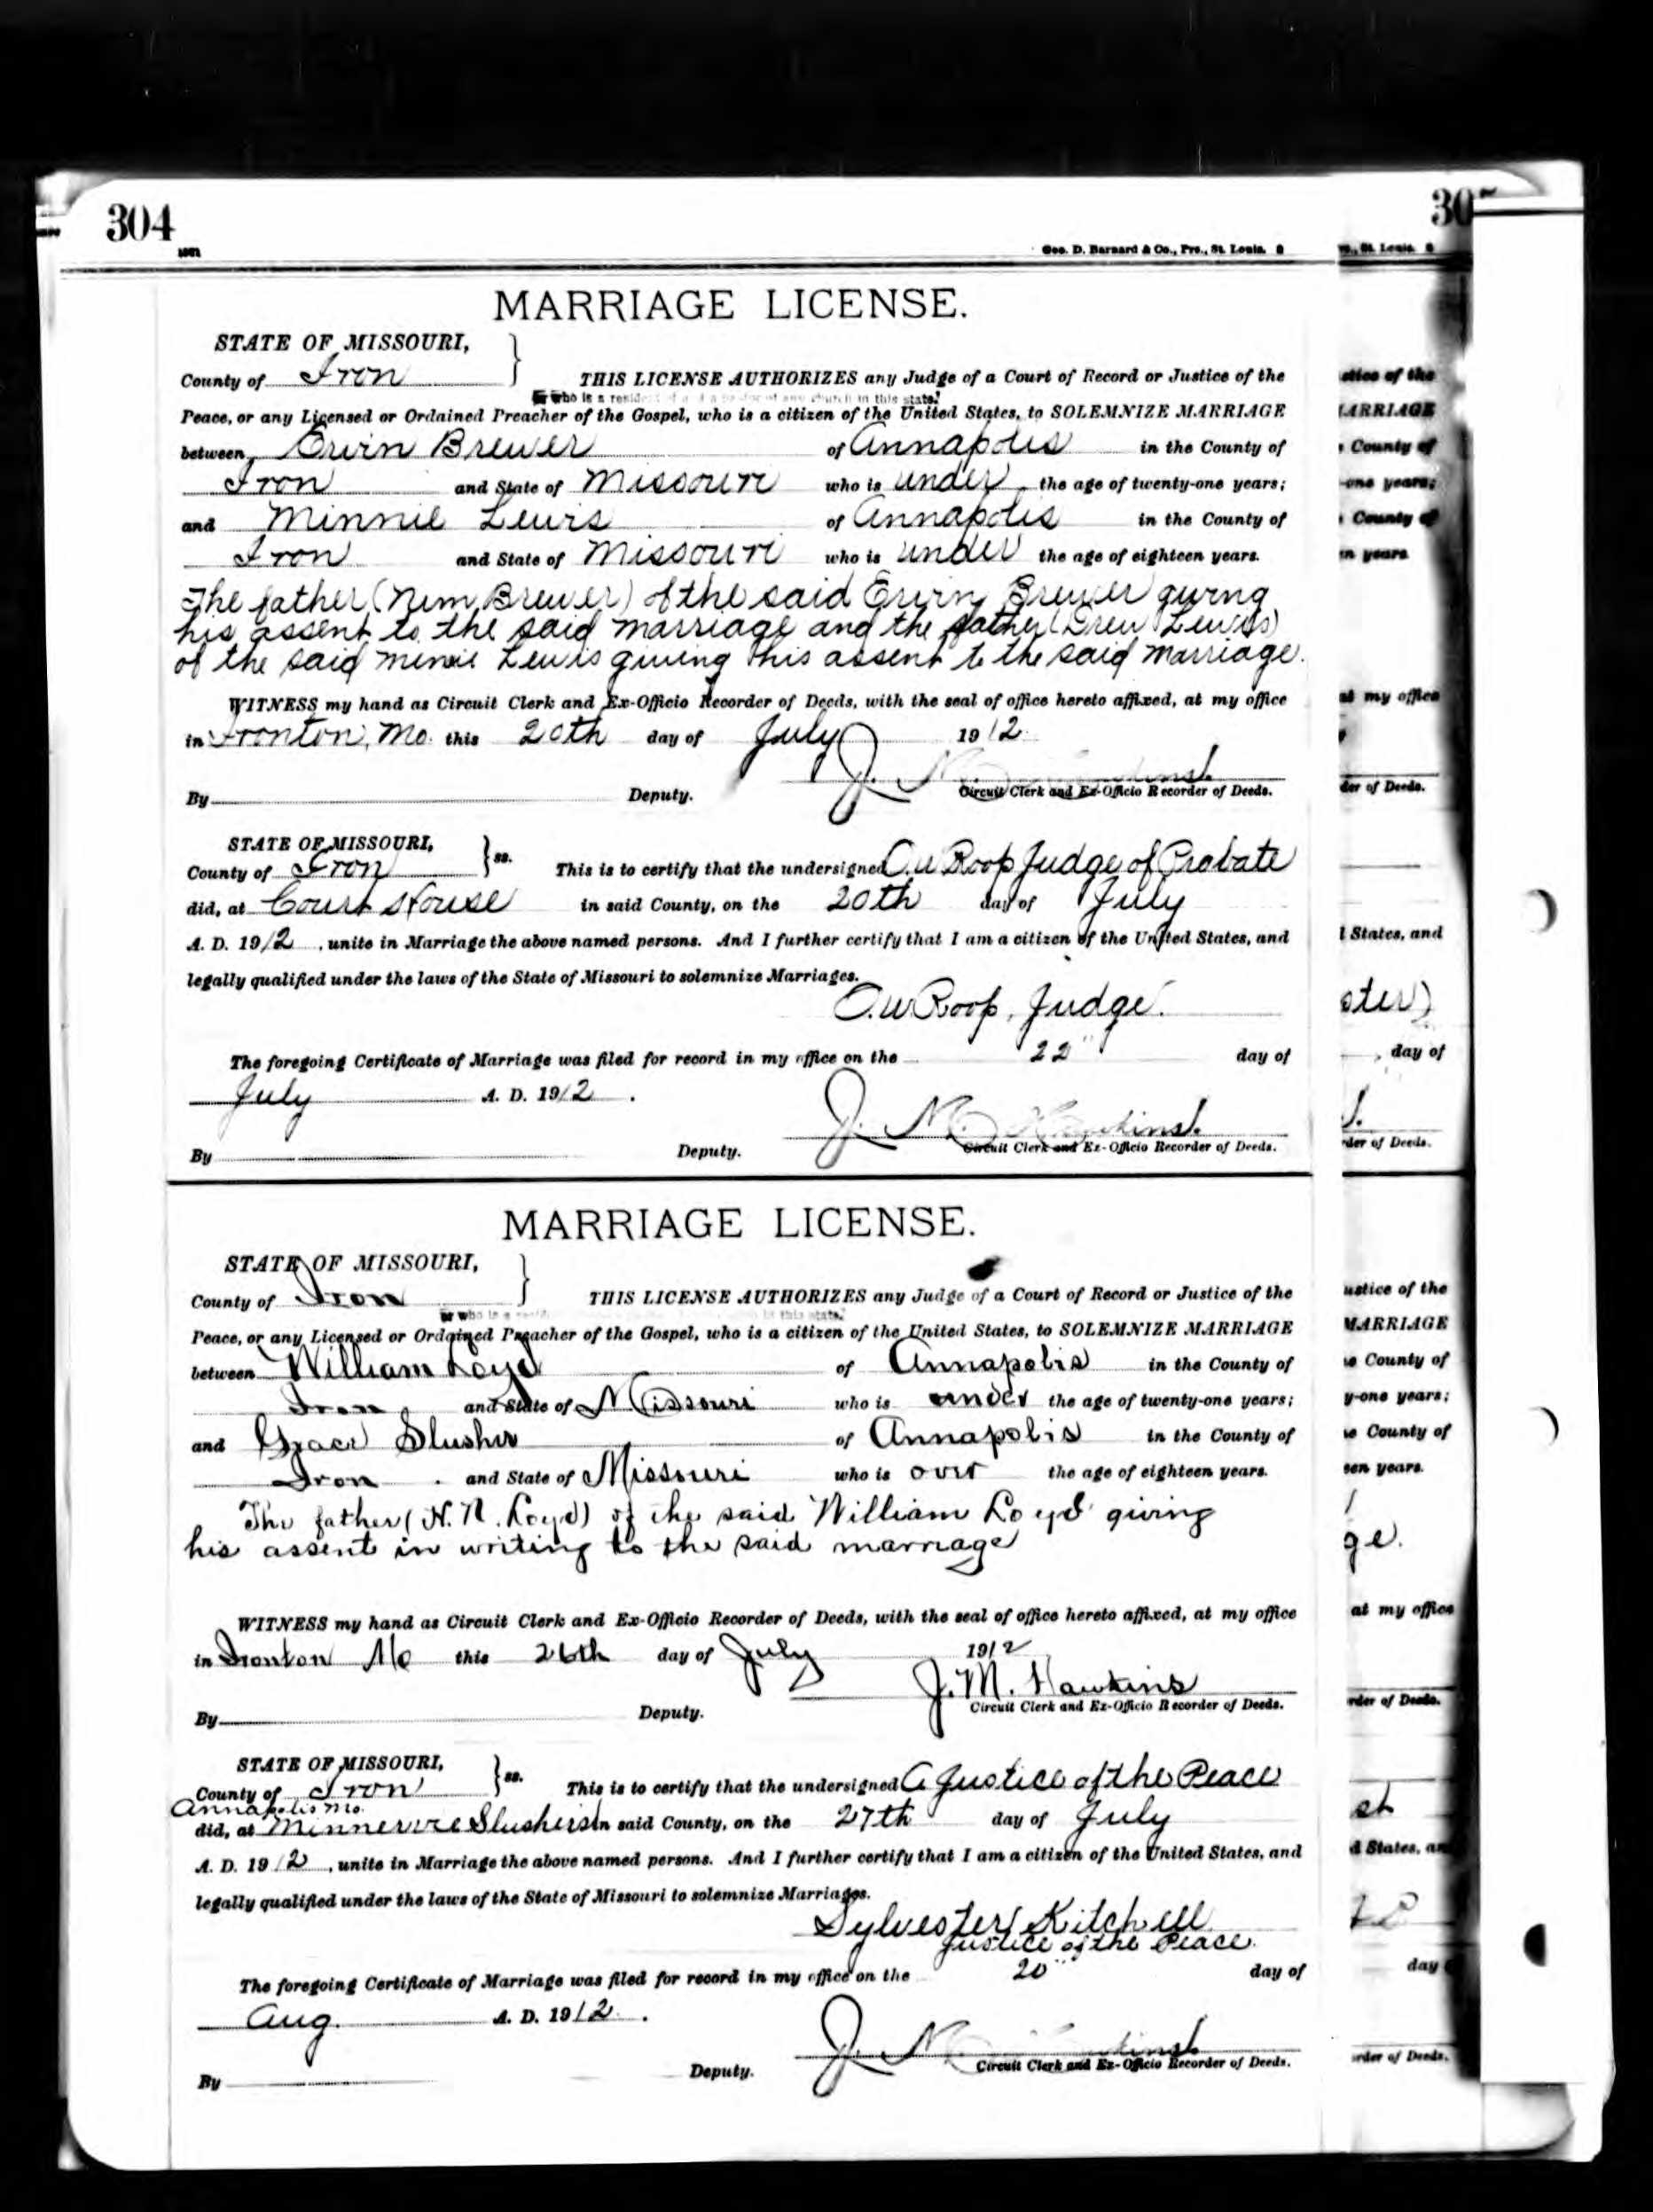 304
30
Geo. D. Barnard & Co., Pro., St. Louis.
St. Louis.
MARRIAGE LICENSE.
STATE OF MISSOURI,
County of Iron
THIS LICENSE AUTHORIZES any Judge of a Court of Record or Justice of the
or who is a resident of and a pastor of any church in this state.
Peace, or any Licensed or Ordained Preacher of the Gospel, who is a citizen of the United States, to SOLEMNIZE MARRIAGE
between Ervin Brewer of Annapolis in the County of
Iron and State of Missouri who is under the age of twenty-one years;
and Minnie Lewis of Annapolis in the County of
Iron and State of Missouri who is under the age of eighteen years.
The father (Nim Brewer) of the said Ervin Brewer giving
his assent to the said marriage and the father (Drew Lewis)
of the said Minnie Lewis giving his assent to the said marriage.
WITNESS my hand as Circuit Clerk and Ex-Officio Recorder of Deeds, with the seal of office hereto affixed, at my office
in Ironton, Mo. this 20th day of July 1912.
J. M. Hawkins.
By Deputy. Circuit Clerk and Ex-Officio Recorder of Deeds.
STATE OF MISSOURI,
County of Iron ss. This is to certify that the undersigned O.W Roop Judge of Probate
did, at Court House in said County, on the 20th day of July
A. D. 1912, unite in Marriage the above named persons. And I further certify that I am a citizen of the United States, and
legally qualified under the laws of the State of Missouri to solemnize Marriages.
O.W Roop, Judge.
The foregoing Certificate of Marriage was filed for record in my office on the 22" day of
July A. D. 1912.
J. M. Hawkins.
By Deputy. Circuit Clerk and Ex-Officio Recorder of Deeds.
MARRIAGE LICENSE.
STATE OF MISSOURI,
County of Iron
THIS LICENSE AUTHORIZES any Judge of a Court of Record or Justice of the
or who is a in this state.
Peace, or any Licensed or Ordained Preacher of the Gospel, who is a citizen of the United States, to SOLEMNIZE MARRIAGE
between William Loyd of Annapolis in the County of
Iron and State of Missouri who is under the age of twenty-one years;
and Grace Slusher of Annapolis in the County of
Iron and State of Missouri who is over the age of eighteen years.
The father (H. N. Loyd) of the said William Loyd giving
his assent in writing to the said marriage
WITNESS my hand as Circuit Clerk and Ex-Officio Recorder of Deeds, with the seal of office hereto affixed, at my office
in Ironton Mo this 26th day of July 1912
J. M. Hawkins
By Deputy. Circuit Clerk and Ex-Officio Recorder of Deeds.
STATE OF MISSOURI,
County of Iron ss. This is to certify that the undersigned A Justice of the Peace
Annapolis Mo.
did, at Slushers in said County, on the 27th day of July
A. D. 1912, unite in Marriage the above named persons. And I further certify that I am a citizen of the United States, and
legally qualified under the laws of the State of Missouri to solemnize Marriages.
Sylvester Kitchell
Justice of the Peace.
The foregoing Certificate of Marriage was filed for record in my office on the 20" day of
Aug. A. D. 1912.
J. M. Hawkins.
By Deputy. Circuit Clerk and Ex-Officio Recorder of Deeds.